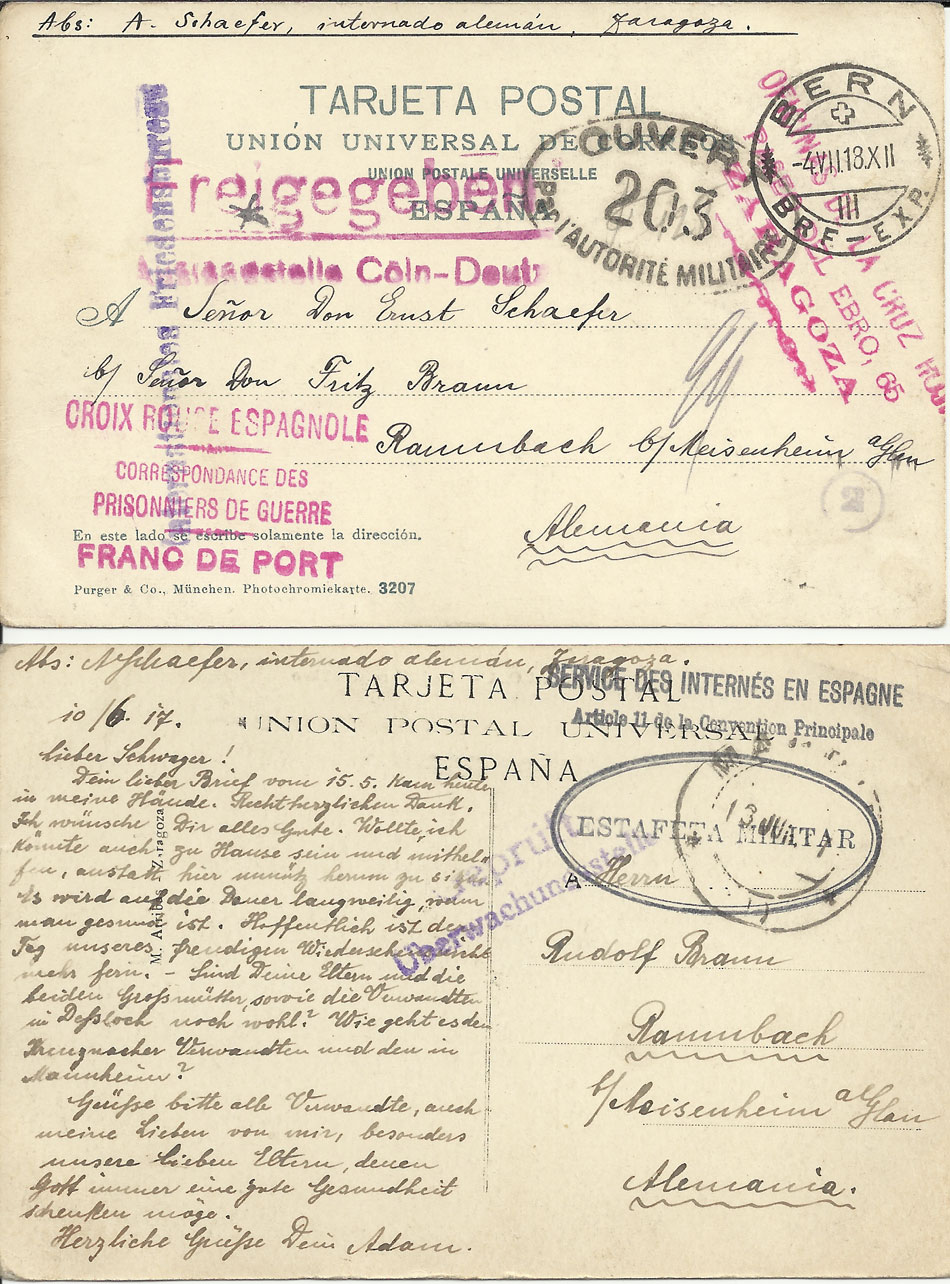 Abs: A. Schaefer, internado alemán, Zaragoza.
TARJETA POSTAL
UNIÓN UNIVERSAL DE CORREOS
UNION POSTALE UNIVERSELLE
ESPAÑA
Freigegeben
Cöln-Deutz
OUVERT
203
PAR L'AUTORITÉ MILITAIRE
BERN
-4.VII.18.XII
III
BRF-EXP.
OFICINAS DE LA CRUZ ROJA
PASEO DEL EBRO, 65
ZARAGOZA
A Señor Don Ernst Schaefer
b/ Señor Don Fritz Braun
Raumbach b/Meisenheim a/Glan
Alemania
CROIX ROUGE ESPAGNOLE
CORRESPONDANCE DES
PRISONNIERS DE GUERRE
FRANC DE PORT
2
En este lado se escribe solamente la dirección.
Purger & Co., München. Photochromiekarte. 3207
Abs: A. Schaefer, internado alemán, Zaragoza.
TARJETA POSTAL
UNION POSTAL UNIVERSAL
ESPAÑA
SERVICE DES INTERNÉS EN ESPAGNE
Article 11 de la Convention Principale
ESTAFETA MILITAR
Überwachungsstelle
10/6.17.
Lieber Schwager!
Dein lieber Brief vom 15.5. kam heute
in meine Hände. Recht herzlichen Dank.
Ich wünsche Dir alles Gute. Wollte ich
könnte auch zu Hause sein und mithel-
fen, anstatt hier unnütz herum zu
Es wird auf die Dauer langweilig, wenn
man gesund ist. Hoffentlich ist der
Tag unseres freudigen Wiedersehens nicht
mehr fern. - Sind Deine Eltern und die
beiden Großmütter, sowie die Verwandten
in Desloch noch wohl? Wie geht es den
Kreuznacher Verwandten und den in
Mannheim?
Grüße bitte alle Verwandte, auch
meine Lieben von mir, besonders
unsere lieben Eltern, denen
Gott immer eine gute Gesundheit
schenken möge.
Herzliche Grüße Dein Adam.
A Herrn
Rudolf Braun
Raumbach
b/Meisenheim a/Glan
Alemania.